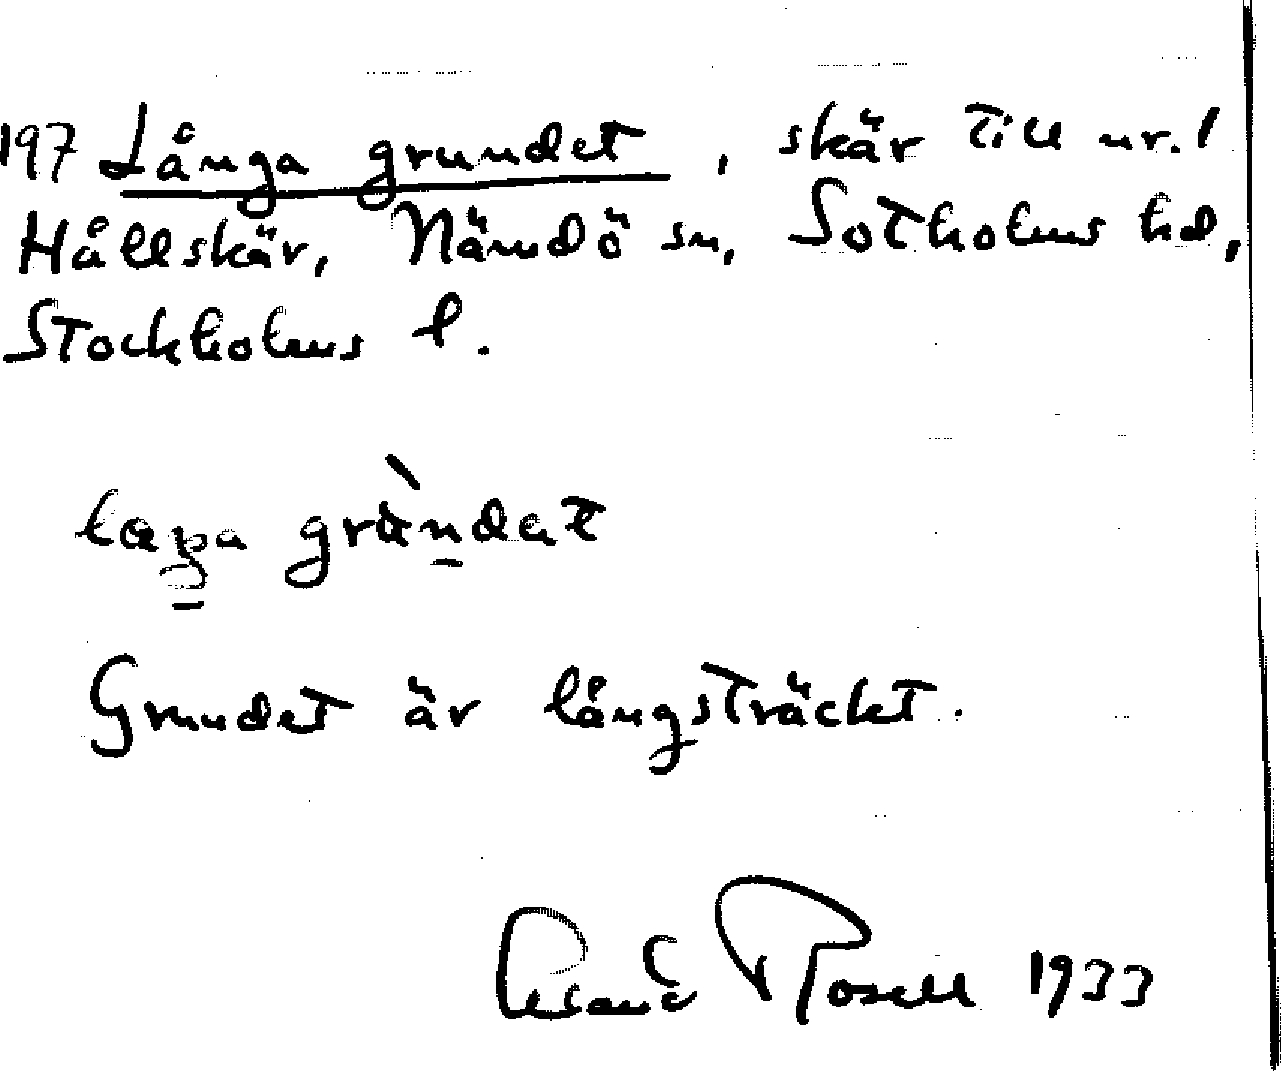 197 Långa grundet, skär till nr. 1
Hållskär, Nämdö sn, Sotholms hd,
Stockholms l.
grùndat
Grundet är långsträckt.
Rosell 1933